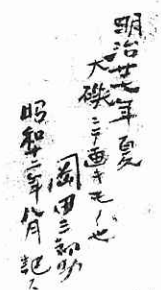 明治廿七年夏
大磯ニテ画キモノ也
岡田三郎助
昭和十二年八月記ス